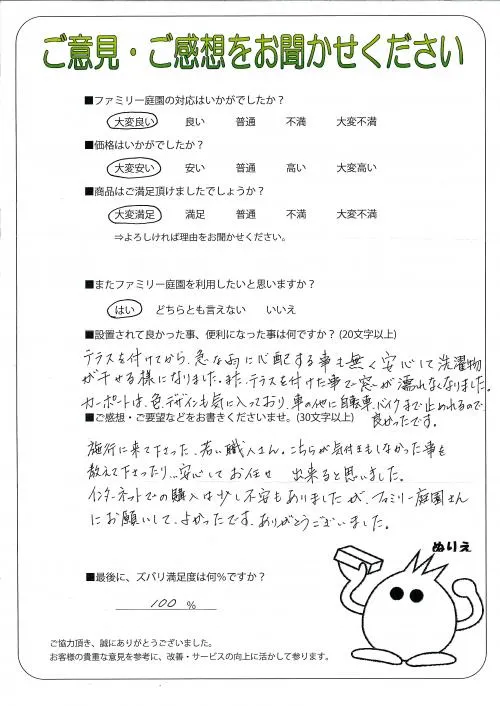 ご意見・ご感想をお聞かせください
■ファミリー庭園の対応はいかがでしたか？
大変良い 良い 普通 不満 大変不満
■価格はいかがでしたか？
大変安い 安い 普通 高い 大変高い
■商品はご満足頂けましたでしょうか？
大変満足 満足 普通 不満 大変不満
⇒よろしければ理由をお聞かせください。
■またファミリー庭園を利用したいと思いますか？
はい どちらとも言えない いいえ
■設置されて良かった事、便利になった事は何ですか？(20文字以上)
テラスを付けてから、急な雨に心配する事も無く安心して洗濯物
が干せる様になりました。また、テラスを付けた事で窓が濡れなくなりました。
カーポートは、色、デザインも気に入っており、車の他に自転車、バイクまで止めれるので
良かったです。
■ご感想・ご要望などをお書きくださいませ。(30文字以上)
施行に来て下さった、若い職人さん。こちらが気付きもしなかった事を
教えて下さったり…安心してお任せ 出来ると思いました。
インターネットでの購入は少し不安もありましたが、ファミリー庭園さん
にお願いして、よかったです、ありがとうございました。
ぬりえ
■最後に、ズバリ満足度は何％ですか？
100 %
ご協力頂き、誠にありがとうございました。
お客様の貴重な意見を参考に、改善・サービスの向上に活かして参ります。